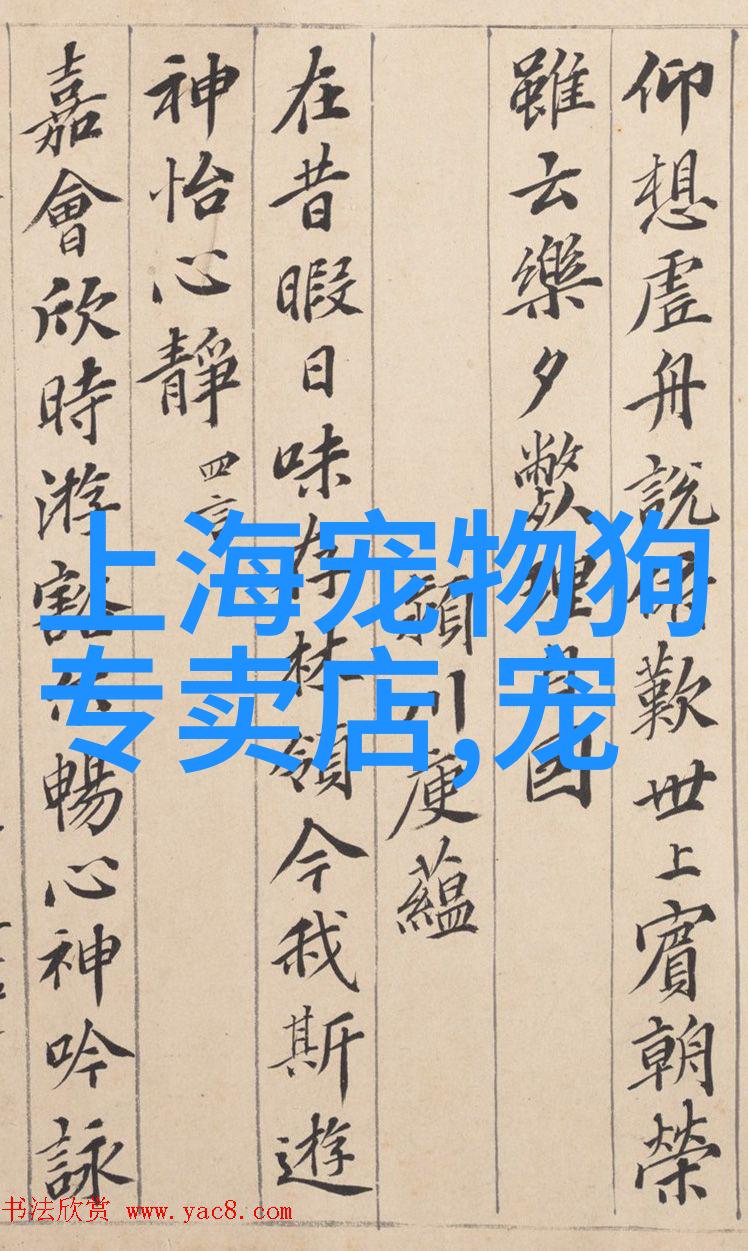 仰想虛舟說俯歎世上賓朝榮
雖云樂夕斃理自因
潁川庾蘊
在昔暇日味存林領今我斯遊
神怡心靜 四言
嘉會欣時游豁尒暢心神吟詠
上海宠物狗
专卖店,宠
书法欣赏 www.yac8.com